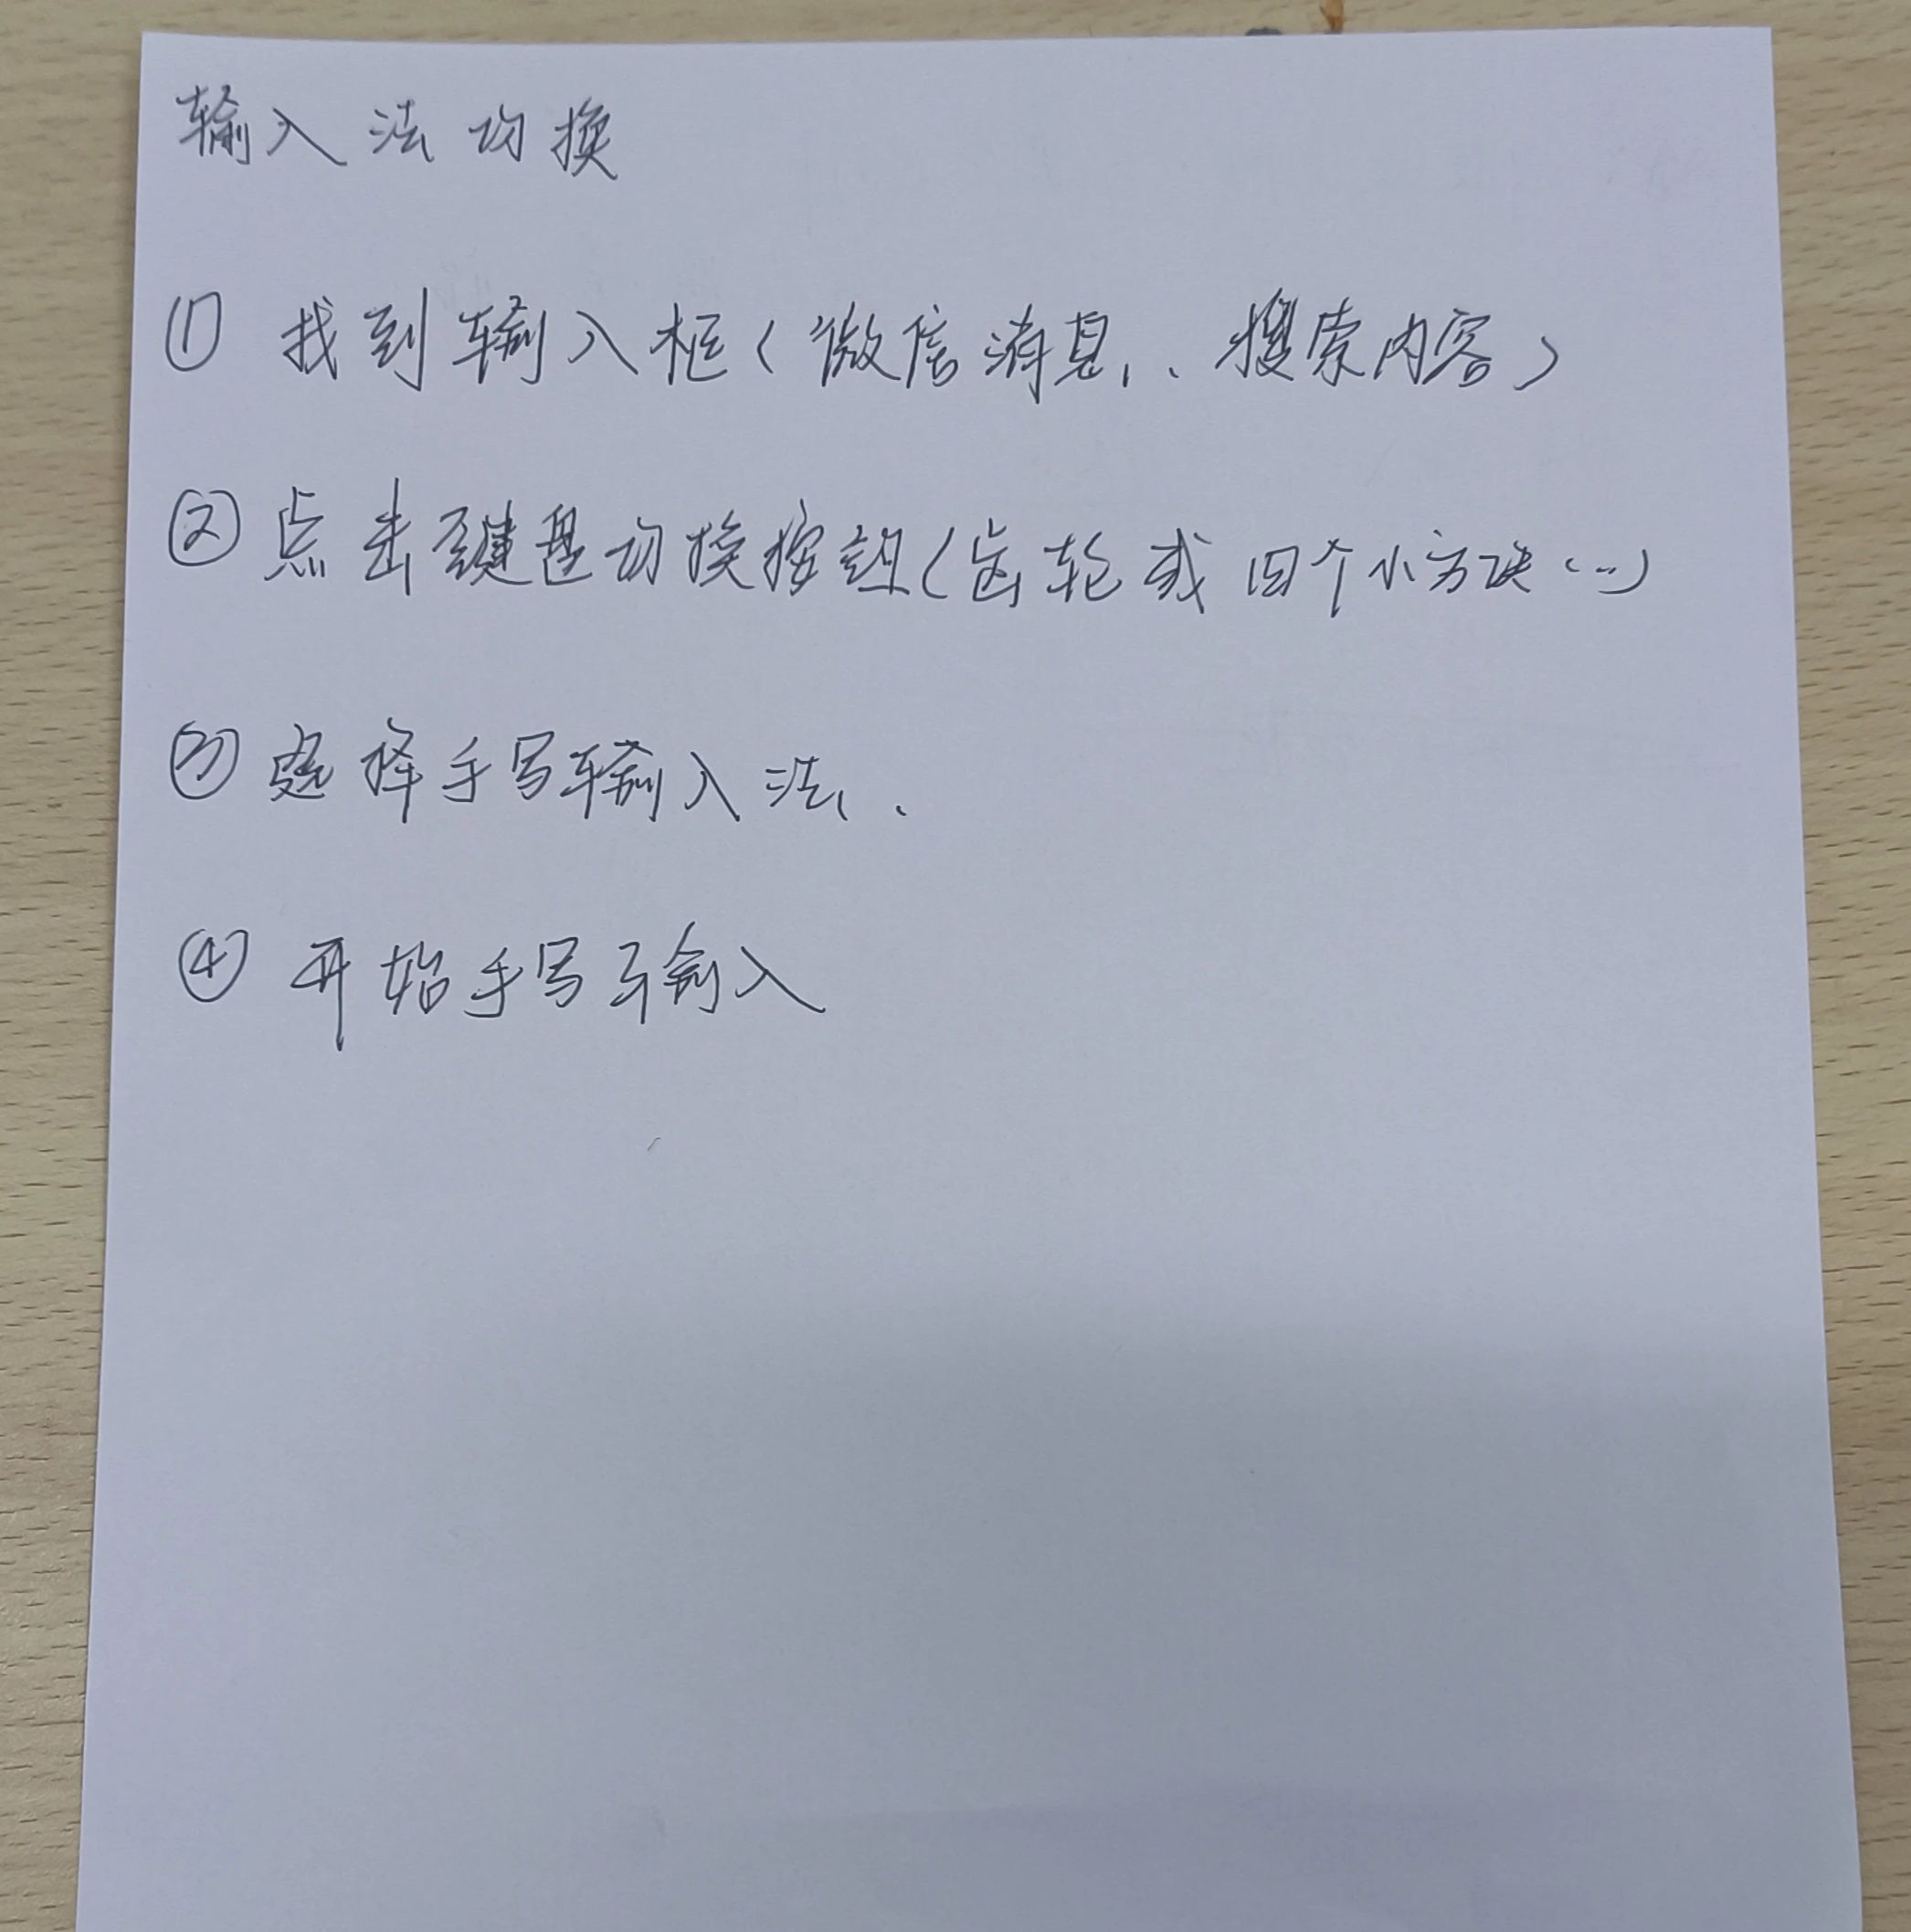 输入法切换
① 找到输入框（微信消息、搜索内容）
② 点击键盘切换按钮（齿轮或四个小方块…）
③ 选择手写输入法、
④ 开始手写输入